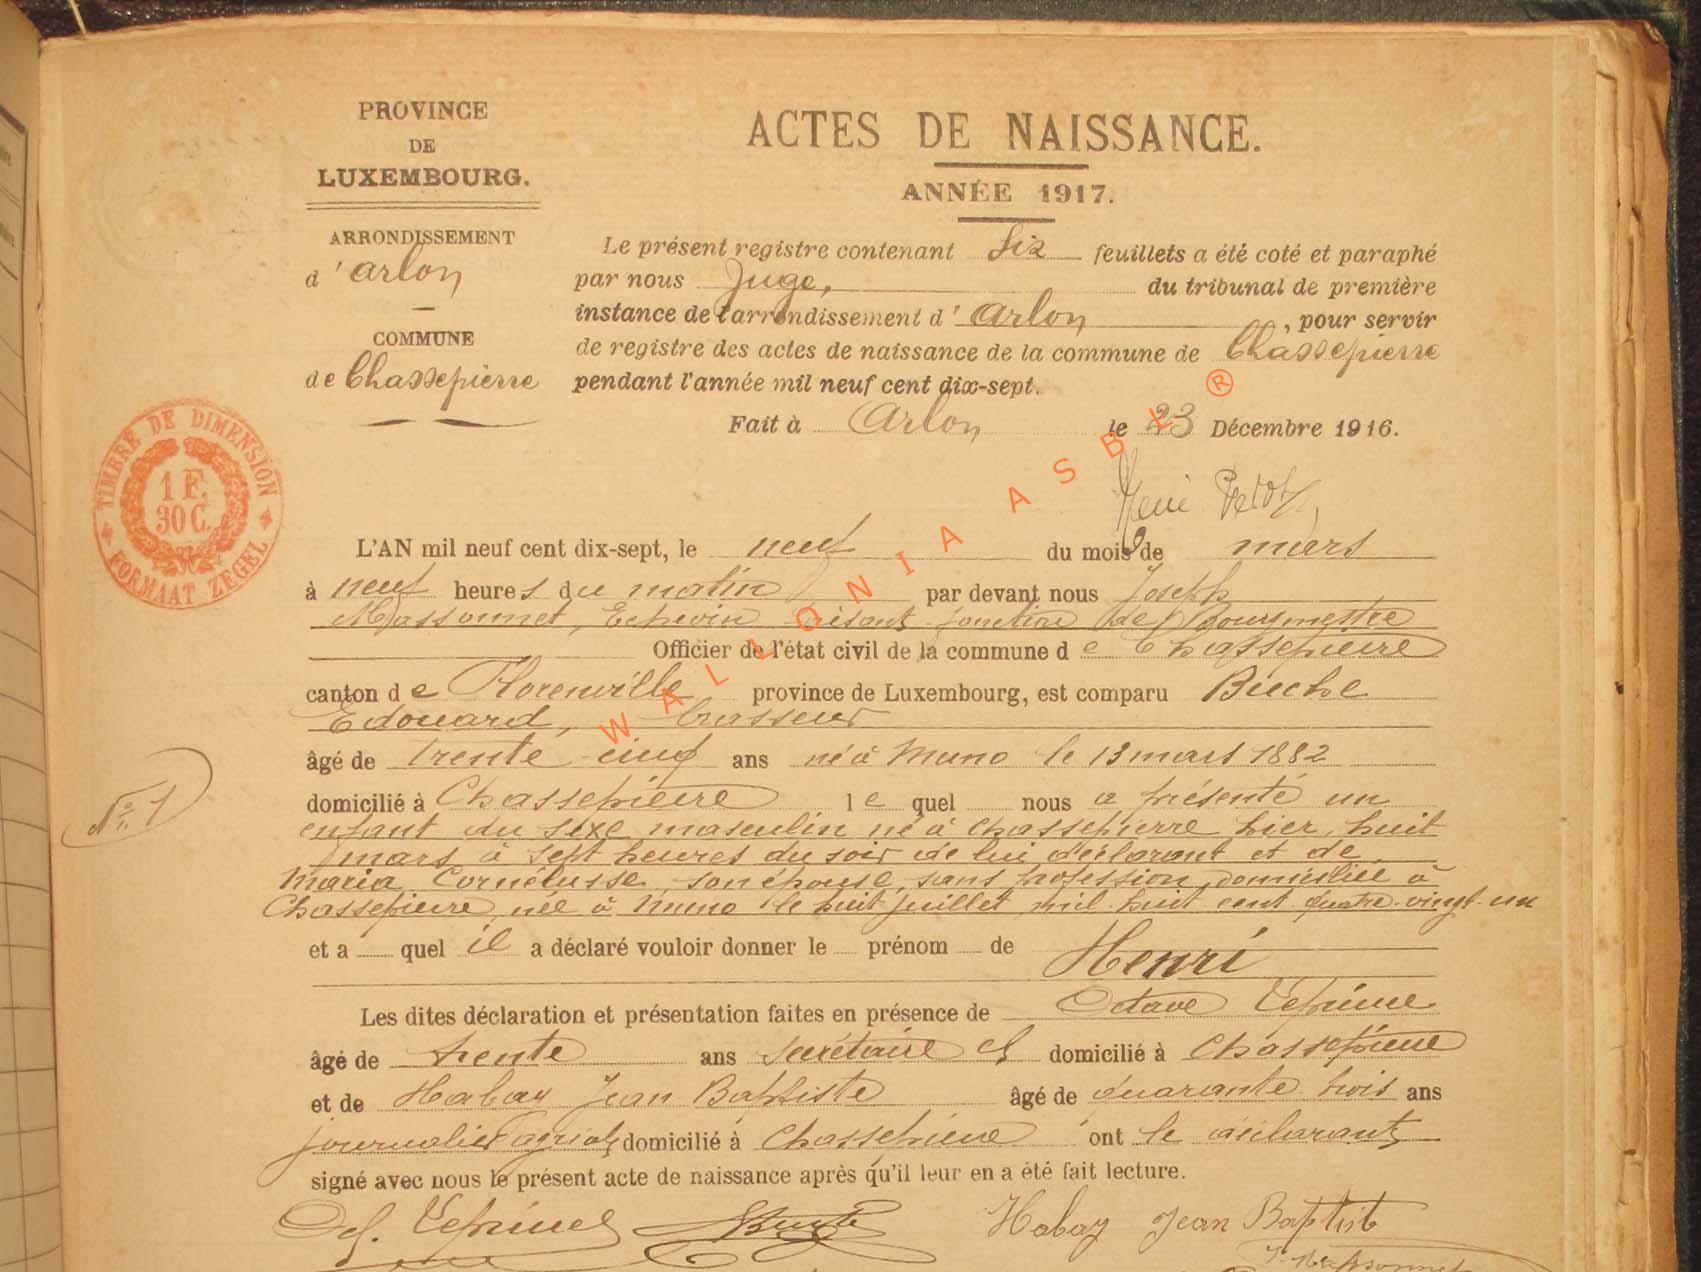 PROVINCE
DE
LUXEMBOURG.
ARRONDISSEMENT
d'Arlon
COMMUNE
de Chassepierre
TIMBRE DE DIMENSION
1 F.
30 C.
FORMAAT ZEGEL
ACTES DE NAISSANCE.
ANNÉE 1917.
Le présent registre contenant Six feuillets a été coté et paraphé
par nous Juge, du tribunal de première
instance de l'arrondissement d'Arlon, pour servir
de registre des actes de naissance de la commune de Chassepierre
pendant l'année mil neuf cent dix-sept.
Fait à Arlon le 23 Décembre 1916.
L'AN mil neuf cent dix-sept, le neuf du mois de mars
à neuf heures du matin par devant nous Joseph
Massonnet, Echevin fonction de Bourgmestre
Officier de l'état civil de la commune de Chassepierre
canton de Florenville province de Luxembourg, est comparu Buche
Edouard, brasseur
âgé de trente-cinq ans né à Muno le 13 mars 1882
N° 1
domicilié à Chassepierre lequel nous a présenté un
enfant du sexe masculin né à Chassepierre hier, huit
mars à sept heures du soir de lui déclarant et de
Maria Cornélusse, son épouse, sans profession, domiciliée à
Chassepierre, née à Muno le huit juillet mil huit cent quatre-vingt-un
et a quel il a déclaré vouloir donner le prénom de
Henri
Les dites déclaration et présentation faites en présence de Octave Lépine
âgé de trente ans secrétaire cl domicilié à Chassepierre
et de Habay Jean Baptiste âgé de quarante trois ans
journalier agricole domicilié à Chassepierre ont le déclarant
signé avec nous le présent acte de naissance après qu'il leur en a été fait lecture.
Habay Jean Baptist
J. Massonnet
WALLONIA ASBL ®